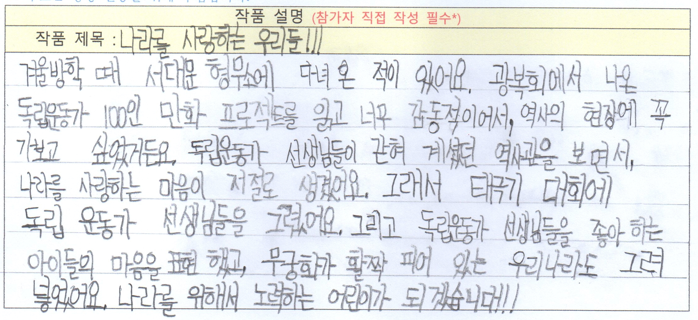 작품 설명 (참가자 직접 작성 필수*)
작품 제목 : 나라를 사랑하는 우리들!!!
겨울방학 때 서대문 형무소에 다녀 온 적이 있어요. 광복회에서 나온
독립운동가 100인 만화 프로젝트를 읽고 너무 감동적이어서, 역사의 현장에 꼭
가보고 싶었거든요. 독립운동가 선생님들이 갇혀 계셨던 역사관을 보면서,
나라를 사랑하는 마음이 저절로 생겼어요. 그래서 태극기 대회에
독립 운동가 선생님들을 그렸어요. 그리고 독립운동가 선생님들을 좋아 하는
아이들의 마음을 표현 했고, 무궁화가 활짝 피어 있는 우리나라도 그려
넣었어요. 나라를 위해서 노력하는 어린이가 되겠습니다!!!